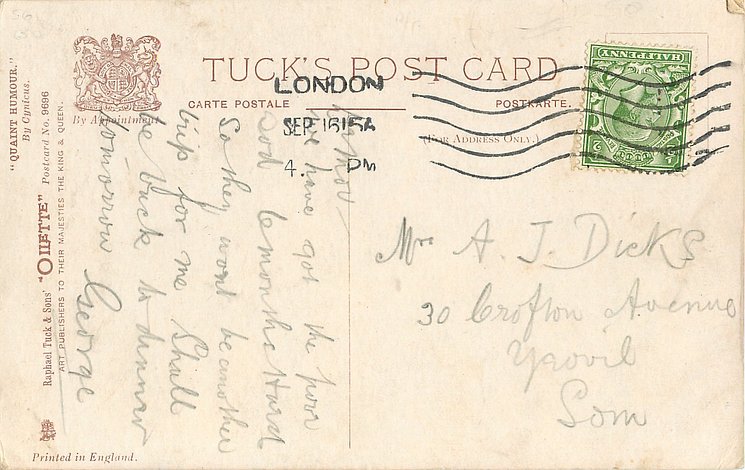 "QUAINT HUMOUR."
By Cynicus.
Raphael Tuck & Sons' "OILETTE" Postcard No. 9696
ART PUBLISHERS TO THEIR MAJESTIES THE KING & QUEEN.
By Appointment
TUCK'S POST CARD
CARTE POSTALE
POSTKARTE.
(FOR ADDRESS ONLY.)
LONDON
SEP 16 15
4. PM
HALFPENNY
have got the poor
sod 6 months Hard
So they wont be another
trip for me Shall
be back to dinner
tomorrow George
Mrs A. J. Dicks
30 Crofton Avenue
Yeovil
Som
Printed in England.